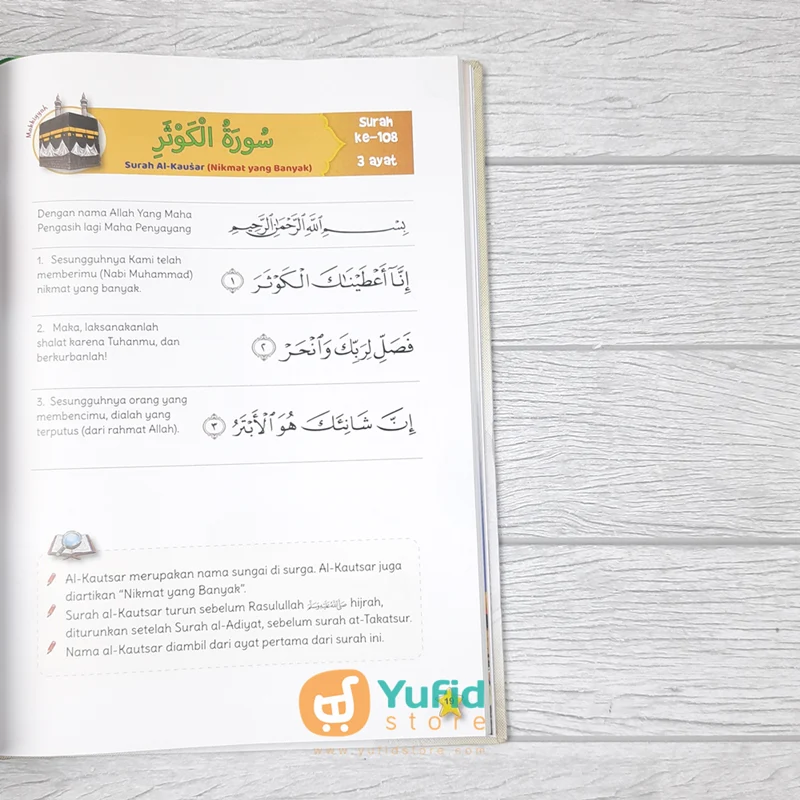 Makkiyyah
سُورَةُ الْكَوْثَرِ
Surah Al-Kauṡar (Nikmat yang Banyak)
Surah
ke-108
3 ayat
Dengan nama Allah Yang Maha
Pengasih lagi Maha Penyayang
بِسْمِ ٱللَّهِ ٱلرَّحْمَٰنِ ٱلرَّحِيمِ
1. Sesungguhnya Kami telah
memberimu (Nabi Muhammad)
nikmat yang banyak.
إِنَّآ أَعْطَيْنَٰكَ الْكَوْثَرَ ١
2. Maka, laksanakanlah
shalat karena Tuhanmu, dan
berkurbanlah!
فَصَلِّ لِرَبِّكَ وَٱنْحَرْ ٢
3. Sesungguhnya orang yang
membencimu, dialah yang
terputus (dari rahmat Allah).
إِنَّ شَانِئَكَ هُوَ ٱلْأَبْتَرُ ٣
Al-Kautsar merupakan nama sungai di surga. Al-Kautsar juga
diartikan “Nikmat yang Banyak”.
Surah al-Kautsar turun sebelum Rasulullah ﷺ hijrah,
diturunkan setelah Surah al-Adiyat, sebelum surah at-Takatsur.
Nama al-Kautsar diambil dari ayat pertama dari surah ini.
Yufid
store
www.yufidstore.com